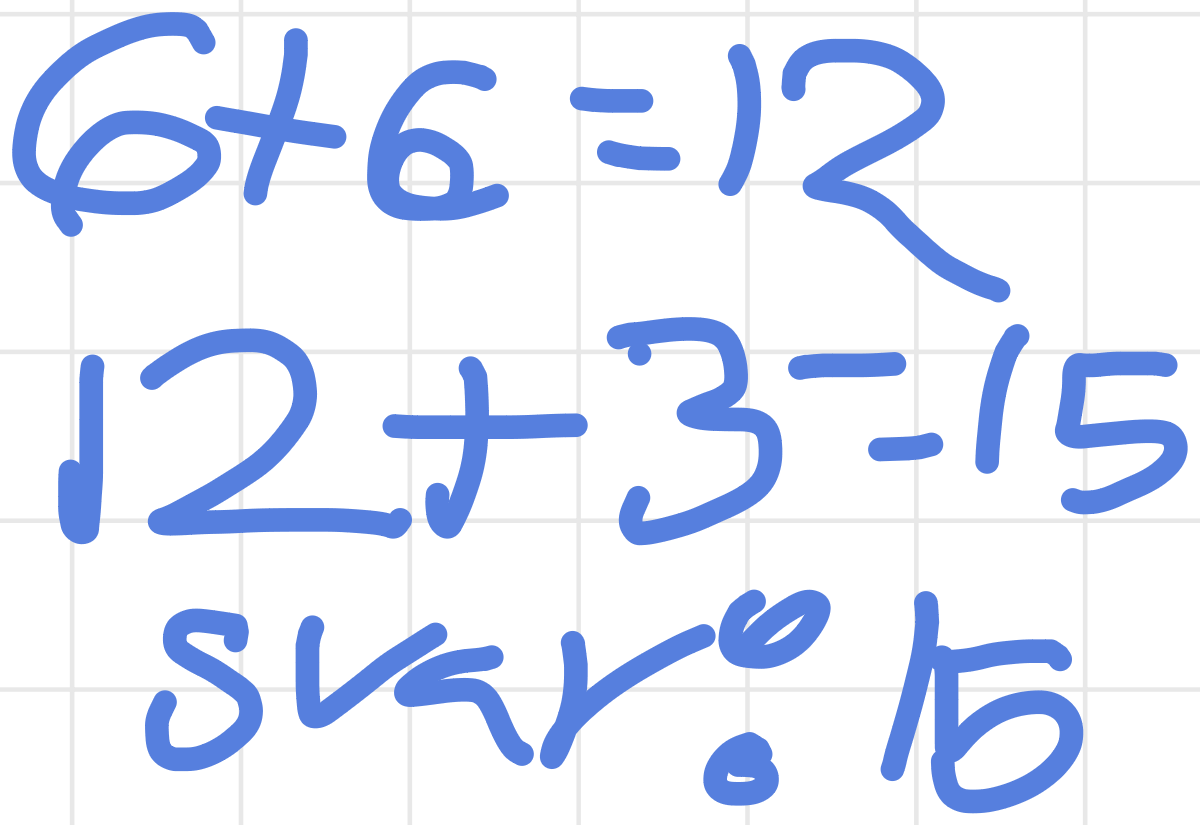 6+6=12
12+3=15
svar: 15